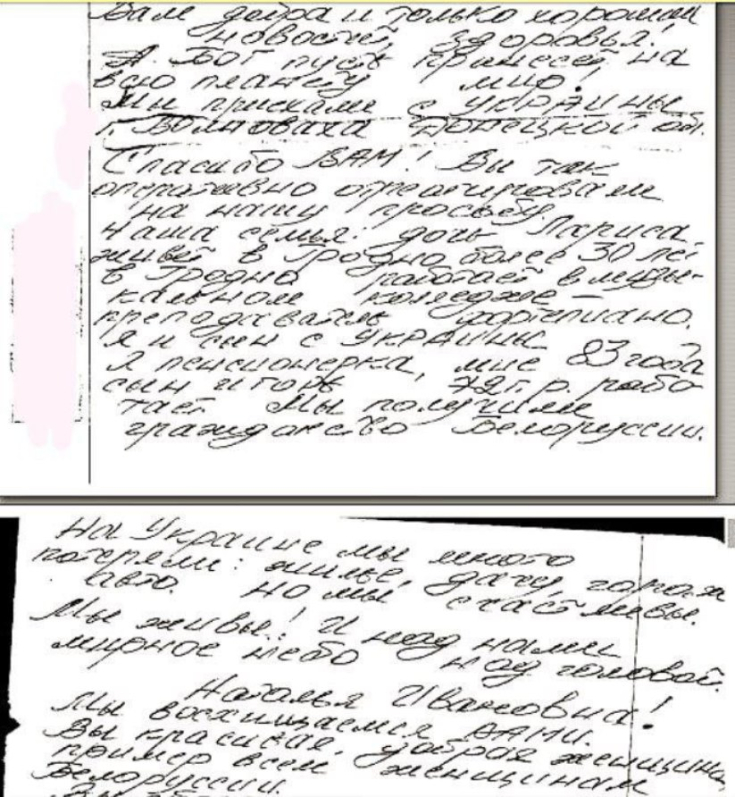 Вам добра и только хороших
новостей, здоровья!
А Бог пусть принесёт на
всю планету мир!
Мы приехали с УКРАИНЫ
г. Волноваха Донецкой об.
Спасибо ВАМ! Вы так
оперативно отреагировали
на нашу просьбу.
Наша семья: дочь Лариса
живёт в Гродно более 30 лет
в Гродно работает в музы-
кальном колледже –
преподаватель фортепиано.
Я и сын с УКРАИНЫ
Я пенсионерка, мне 83 года
сын Игорь 72 г.р. рабо
тает. Мы получили
гражданство Белоруссии.
На Украине мы много
потеряли: жилье, дачу, гараж
авто. Но мы счастливы.
Мы живы! И над нами
мирное небо над головой.
Наталья Ивановна!
Мы восхищаемся ВАМИ.
Вы красивая, добрая женщина
пример всем женщинам
Белоруссии.